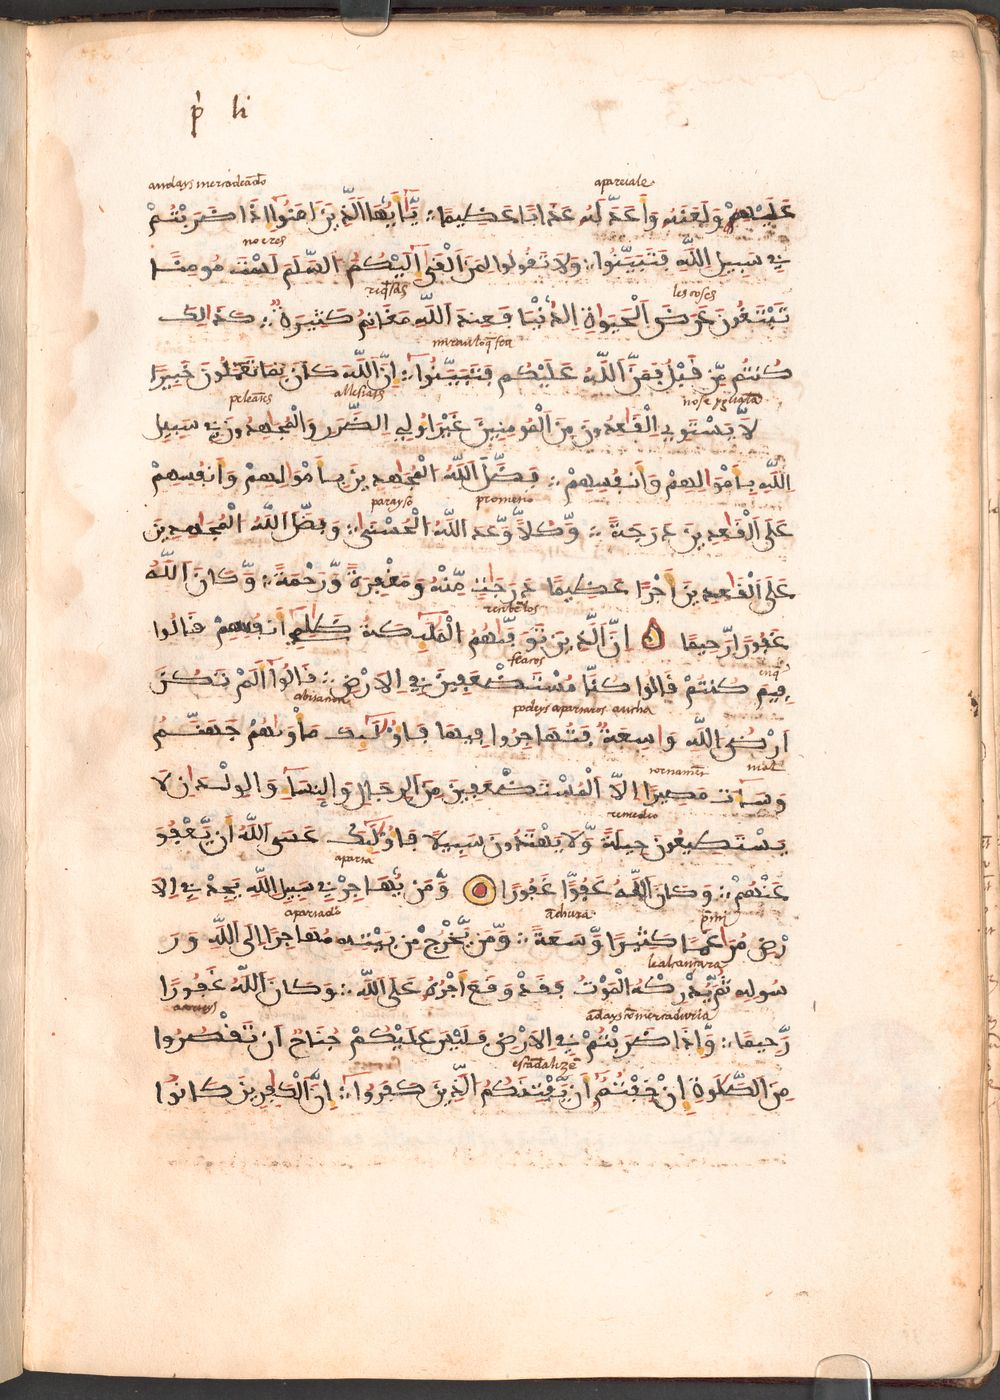 p̄ li
andays mercadeãdo apareiale
عَلَيْهِمْ وَلَعَنَهُ وَأَعَدَّ لَهُ عَذَابًا عَظِيمًا ؞ يَٰٓأَيُّهَا اَلَّذِينَ ءَامَنُوٓاْ إِذَا ضَرَبْتُمْ
no eres
فِي سَبِيلِ اِللَّهِ فَتَبَيَّنُوا ؞ وَلَا تَقُولُوا لِمَنَ اَلْقَىٰٓ إِلَيْكُمُ اُلسَّلَمَ لَسْتَ مُومِنًا
les coses
تَبْتَغُونَ عَرَضَ اَلْحَيَوٰةِ اِلدُّنْيَا فَعِندَ اَللَّهِ مَغَانِمُ كَثِيرَةٌ ؞ كَذَٰلِكَ
كُنتُم مِّن قَبْلُ فَمَنَّ اَللَّهُ عَلَيْكُمْ فَتَبَيَّنُوٓا ؞ إِنَّ اَللَّهَ كَانَ بِمَا تَعْمَلُونَ خَبِيرًا
لَّا يَسْتَوِي اِلْقَٰعِدُونَ مِنَ اَلْمُومِنِينَ غَيْرَ أُوْلِي اِلضَّرَرِ وَالْمُجَٰهِدُونَ فِي سَبِيلِ
اِللَّهِ بِأَمْوَٰلِهِمْ وَأَنفُسِهِمْ ؞ فَضَّلَ اَللَّهُ اُلْمُجَٰهِدِينَ بِأَمْوَٰلِهِمْ وَأَنفُسِهِمْ
parayso promeno
عَلَى اَلْقَٰعِدِينَ دَرَجَةً ؞ وَكُلًّا وَّعَدَ اَللَّهُ اُلْحُسْنَىٰ ؞ وَفَضَّلَ اَللَّهُ اُلْمُجَٰهِدِينَ
عَلَى اَلْقَٰعِدِينَ أَجْرًا عَظِيمًا دَرَجَٰتٍ مِّنْهُ وَمَغْفِرَةً وَّرَحْمَةً ؞ وَّكَانَ اَللَّهُ
غَفُورًا رَّحِيمًا إِنَّ اَلَّذِينَ تَوَفَّىٰهُمُ اُلْمَلَٰٓئِكَةُ ظَالِمِيٓ أَنفُسِهِمْ قَالُوا
flacos
فِيمَ كُنتُمْ قَالُوا كُنَّا مُسْتَضْعَفِينَ فِي اِلَارْضِ ؞ قَالُوٓا أَلَمْ تَكُنَ
podeys apartaros ancha
اَرْضُ اُللَّهِ وَٰسِعَةً فَتُهَاجِرُوا فِيهَا فَأُوْلَٰٓئِكَ مَأْوَىٰهُمْ جَهَنَّمُ
وَسَآءَتْ مَصِيرًا إِلَّا اَلْمُسْتَضْعَفِينَ مِنَ اَلرِّجَالِ وَالنِّسَآءِ وَالْوِلْدَٰنِ لَا
remedio
يَسْتَطِيعُونَ حِيلَةً وَّلَا يَهْتَدُونَ سَبِيلًا فَأُوْلَٰٓئِكَ عَسَى اَللَّهُ أَن يَّعْفُوَ
aparta
عَنْهُمْ ؞ وَكَانَ اَللَّهُ عَفُوًّا غَفُورًا وَّمَن يُّهَاجِرْ فِي سَبِيلِ اِللَّهِ يَجِدْ فِي اِلَا
apartado ãchura
رْضِ مُرَٰغَمًا كَثِيرًا وَّسَعَةً ؞ وَّمَن يَّخْرُجْ مِن بَيْتِهِ مُهَاجِرًا إِلَى اَللَّهِ وَرَ
le alcançara
سُولِهِ ثُمَّ يُدْرِكْهُ اُلْمَوْتُ فَقَدْ وَقَعَ أَجْرُهُ عَلَى اَللَّهِ ؞ وَكَانَ اَللَّهُ غَفُورًا
رَّحِيمًا ؞ وَّإِذَا ضَرَبْتُمْ فِي اِلَارْضِ فَلَيْسَ عَلَيْكُمْ جُنَاحٌ أَن تَقْصُرُوا
escãdalizẽ
مِنَ اَلصَّلَوٰةِ إِنْ خِفْتُمُۥٓ أَن يَّفْتِنَكُمُ اُلَّذِينَ كَفَرُوٓا ؞ إِنَّ اَلْكَٰفِرِينَ كَانُوا